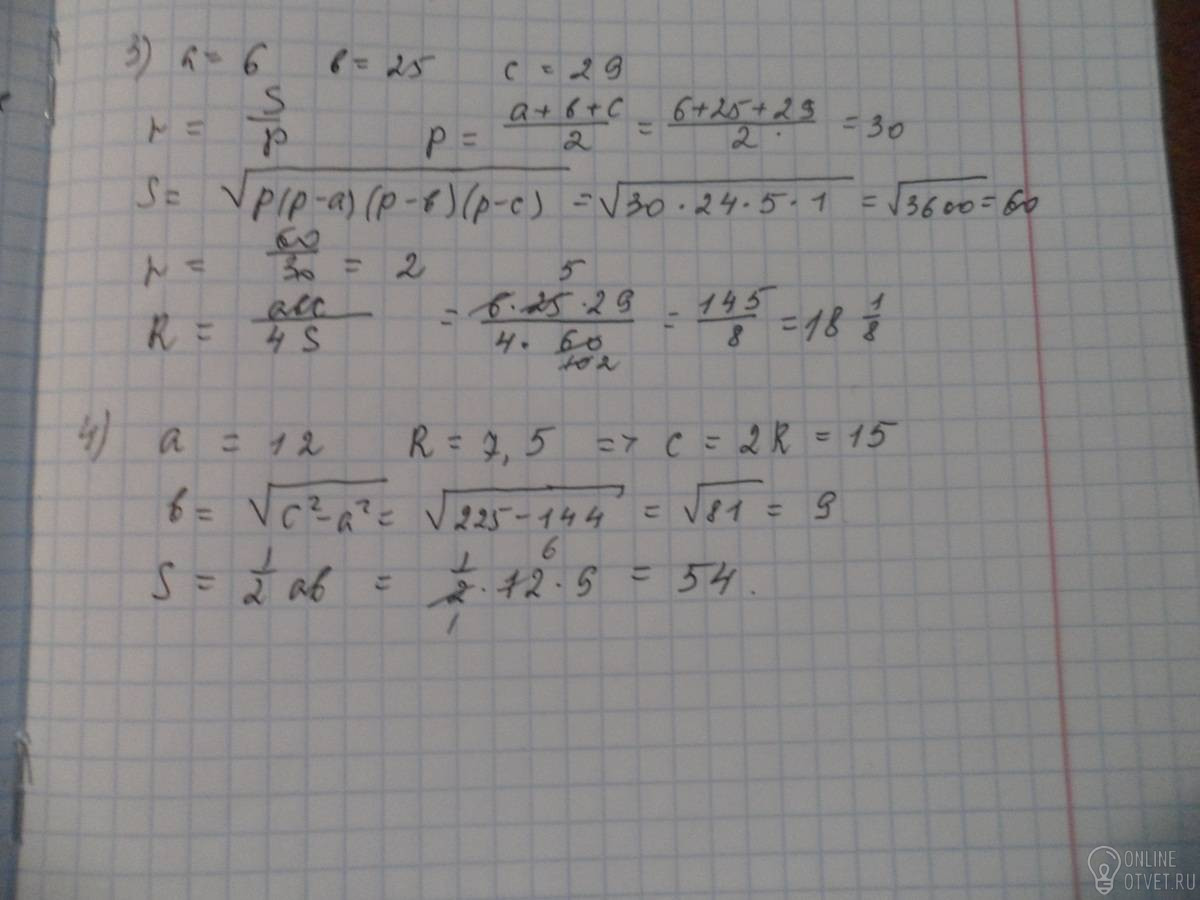 3) a = 6 в = 25 c = 29
r = S/p p = (a + в + c)/2 = (6+25+29)/2 = 30
S = √(p(p-a)(p-в)(p-c)) = √(30·24·5·1) = √3600 = 60
r = 60/30 = 2
R = aвc/4S = (6·25·29)/(4·60) 5 10 2 = 145/8 = 18 1/8
4) a = 12 R = 7,5 => c = 2R = 15
в = √(c²-a²) = √(225-144) = √81 = 9
S = 1/2 aв = 1/2 · 12 · 9 6 1 = 54.
ONLINE
OTVET.RU